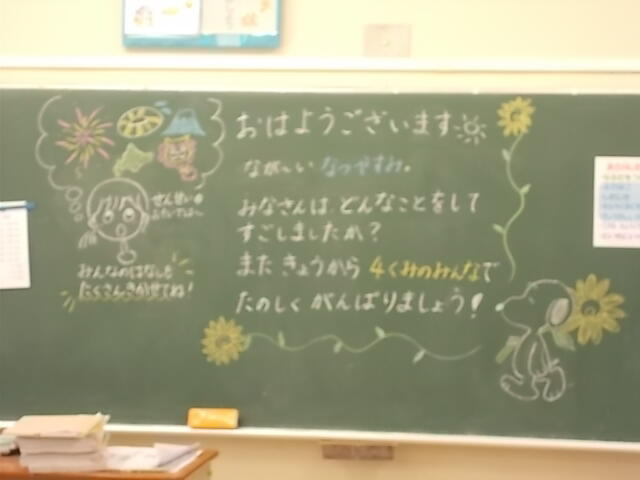 おはようございます
ながーい なつやすみ。
みなさんは、どんなことをして
すごしましたか?
また きょうから 4くみのみんなで
たのしく がんばりましょう!
せんせいの
みんなのはなしも
たくさんきかせてね!